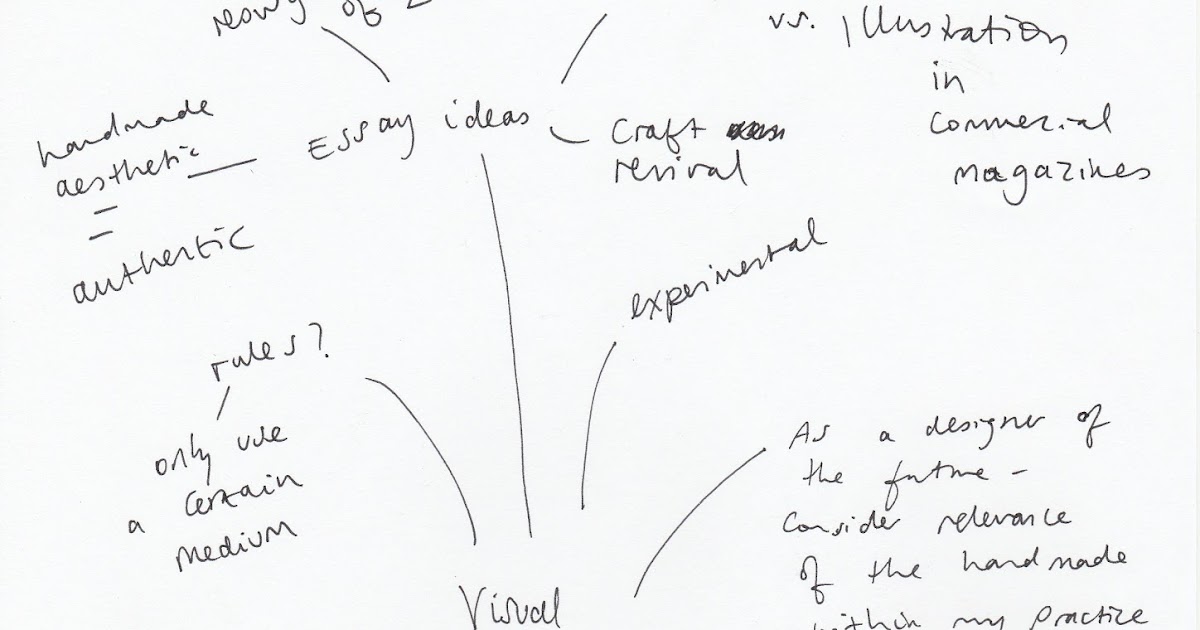 of
vs. Illustration
in
commercial
magazines
handmade
aesthetic
=
authentic
Essay ideas
Craft
revival
experimental
rules?
only use
a certain
medium
As a designer of
the future -
Consider relevance
of the handmade
within my practice
Visual